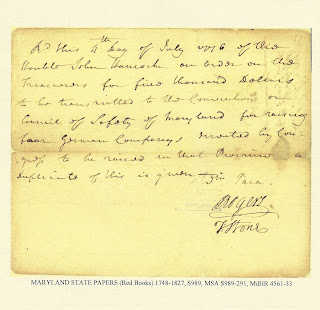 Rd. this 4th Day of July 1776 of the
Honble John Hancock an order on the
Treasurers for five thousand Dollars
to be transmitted to the Convention or
Council of Safety of Maryland for raising
four German Companys directed by Con-
gress to be raised in that Province a
duplicate of this is given Wm Paca
J Rogers
T Stone
MARYLAND STATE PAPERS (Red Books) 1748-1827, S989, MSA S989-291, MdHR 4561-33